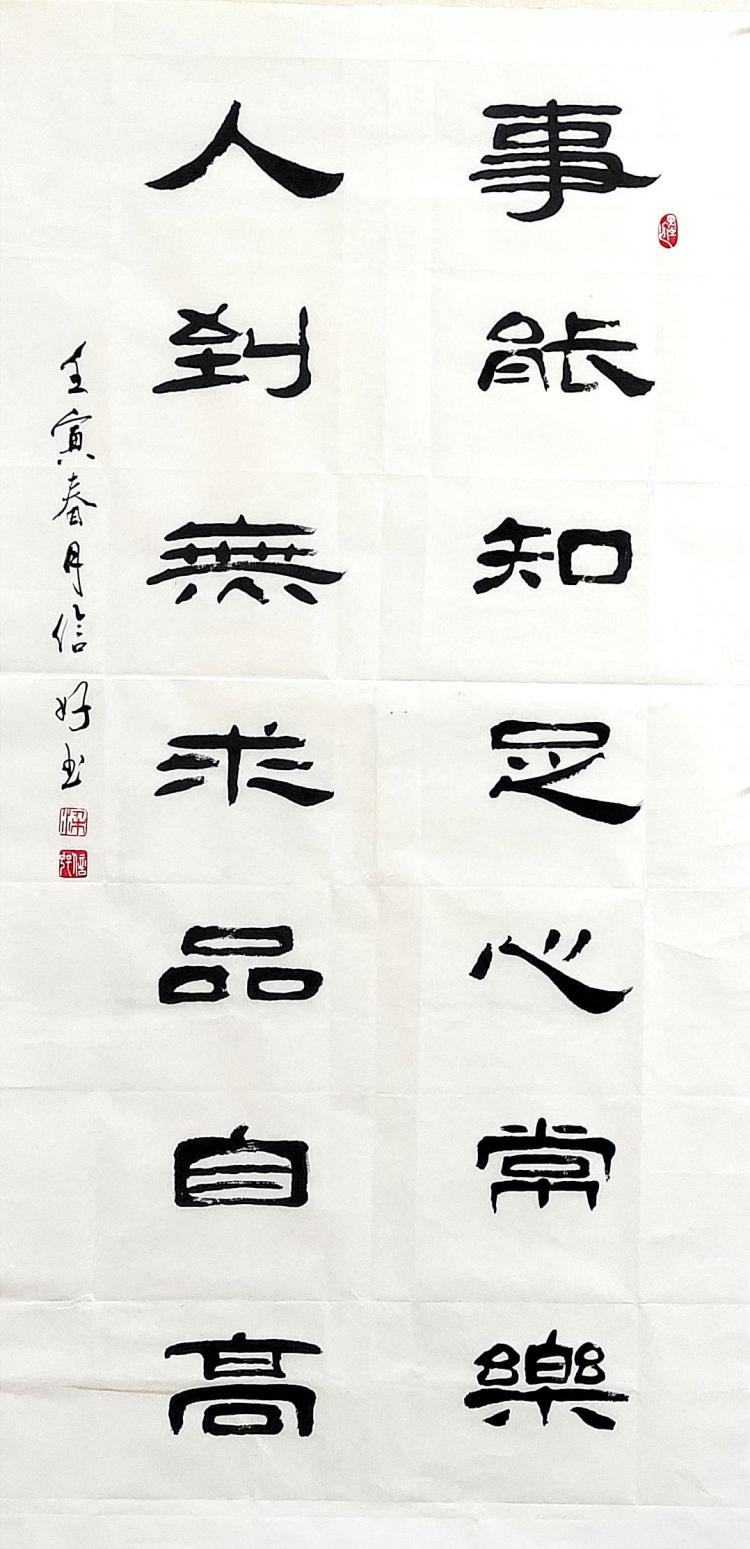 事能知足心常樂
人到無求品自高
壬寅春月信好书
梁
信好